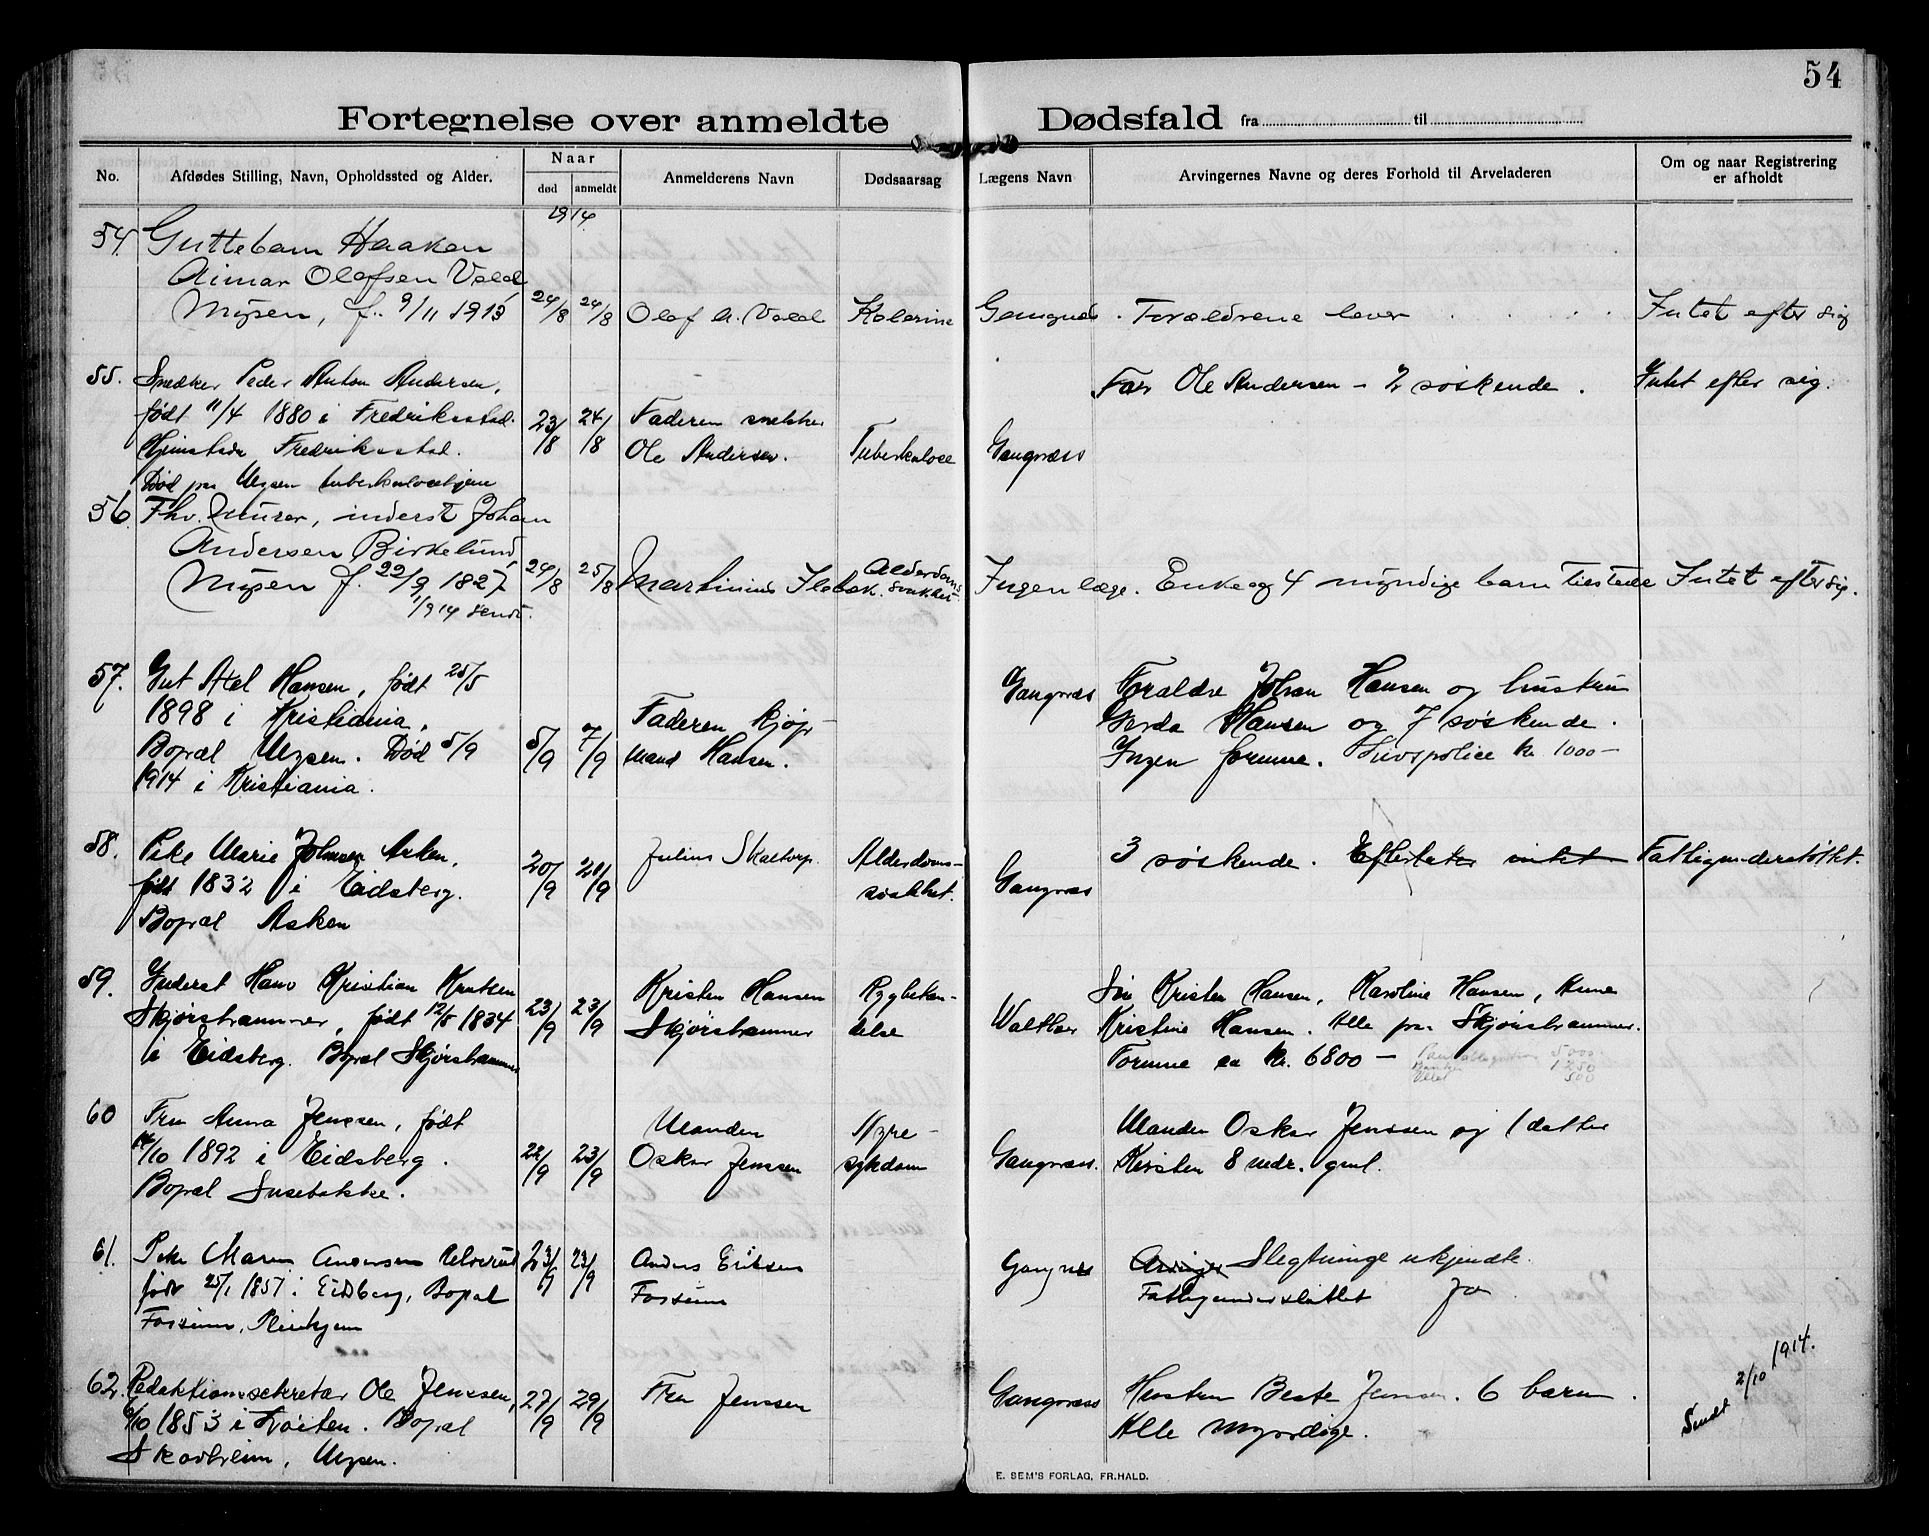 54
Fortegnelse over anmeldte Dødsfald fra til
No.
Afdødes Stilling, Navn, Opholdssted og Alder.
Naar
død
anmeldt
Anmelderens Navn
Dødsaarsag
Lægens Navn
Arvingernes Navne og deres Forhold til Arveladeren
Om og naar Registrering
er afholdt
1914
54. Guttebarn Haakon
Aimar Olafsen
Mysen, f. 9/11 1913 24/8 24/8 Olaf A. Kolerine Forældrene lever Intet efter sig
55. Snedker Peder Anton Andersen, Far Ole Andersen - 2 søskende. Intet efter sig.
født 11/4 1880 i Fredriksstad. 23/8 24/8 Faderen snekker
Hjemsted Fredriksstad. Ole Andersen. Tuberkulose Gangnæss
Død paa Mysen tuberkulosehjem
56. Fhv. murer, inderst Johan
Andersen Birkelund,
Mysen f. 22/9 1827 24/8 25/8 Martinius Alderdoms- Ingen læge. Enke og 4 myndige barn tilstede Intet efter sig.
1/9 14 sendt.
57. Gut Axel Hansen, født 25/5 Gangnæss Forældre Johan Hansen og hustru
1898 i Kristiania. Faderen kjøp- Gerda Hansen og 7 søskende.
Bopæl Mysen. Død 5/9 5/9 7/9 mand Hansen. Ingen formue. Livspolice kr. 1000 -
1914 i Kristiania.
58. Pike Marie Johnsen Asken, Julius Skaltorp. Alderdoms- 3 søskende. Efterlater intet Fattigunderstøttet.
født 1832 i Eidsberg. 20/9 21/9 svakhet. Gangnæss
Bopæl Asken
59. Inderst Hans Kristian Knutsen Kristen Hansen Rygbetæn- Kristen Hansen, Karoline Hansen, Anne
Skjørshammer, født 12/5 1834 23/9 23/9 Skjørshammer delse Walther Kristine Hansen. Alle paa Skjørshammer.
i Eidsberg. Bopæl Skjørshammer Formue ca kr. 6800 - 5000
1250
500
60 Fru Anna Jenssen, født Manden Nyre- Manden Oskar Jenssen og 1 datter
14/10 1892 i Eidsberg. 22/9 23/9 Oskar Jenssen sykdom Gangnæss. Kirsten 8 mdr. gml.
Bopæl Susebakke.
61. Pike Maren 23/9 23/9 Anders Eriksen Gangnæs Arvinger Slegtninge ukjendte.
født 25/1 1857 i Eidsberg, Bopæl Fossum Fattigunderstøttet Ja
Fossum, Pleiehjem
62. Redaktionssekretær Ole Jenssen, 27/9 29/9 Fru Jenssen Gangnæss Hustru Beate Jenssen. 6 barn. Sendt 2/10 1914.
6/10 1853 i Løiten. Bopæl Alle myndige.
Skovheim, Mysen.
E. SEM'S FORLAG, FR.HALD.